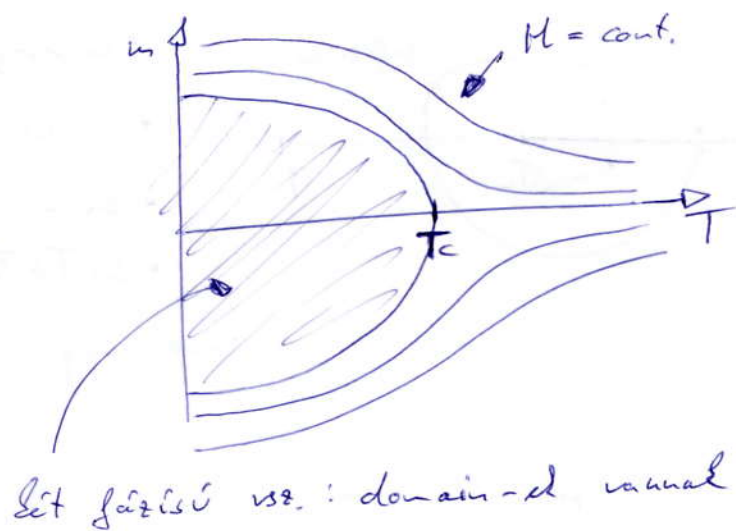 m
H = cont.
T
Tc
két fázisú vsz. : domain-ek vannak